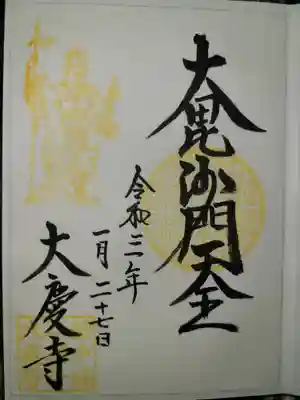 大毘沙門天
令和三年
一月二十七日
大慶寺